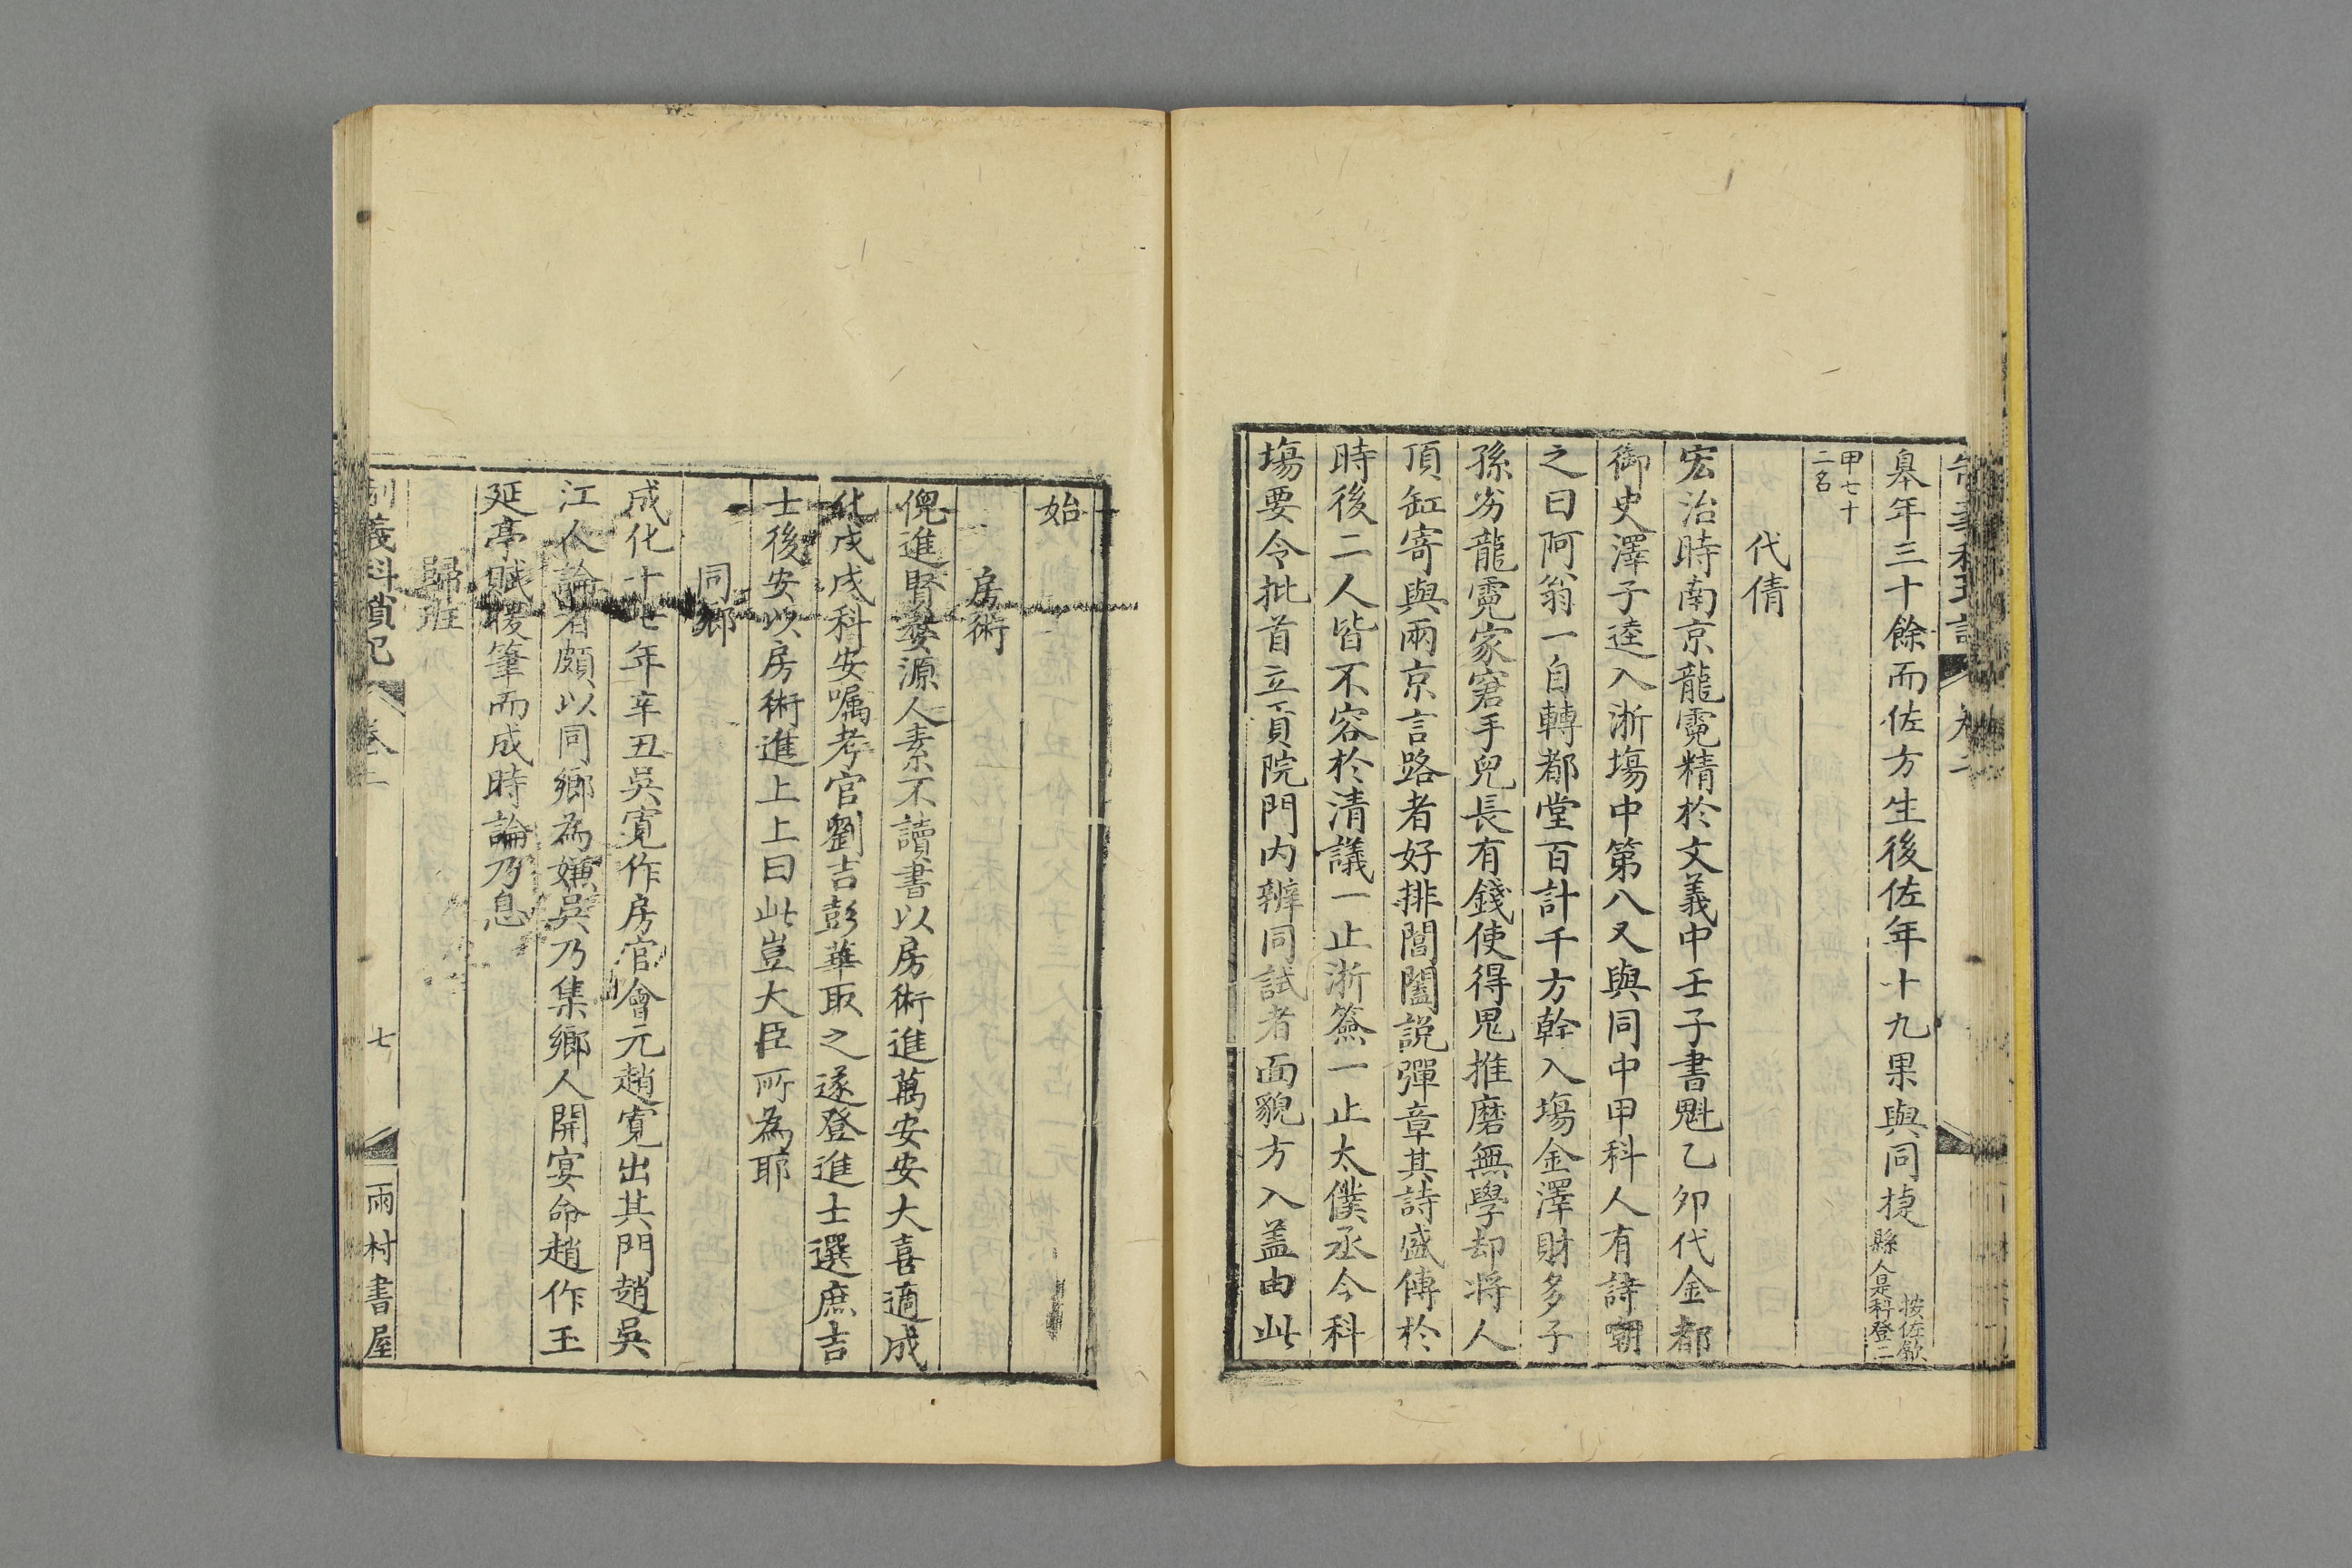 臯年三十餘而佐方生後佐年十九果與同捷縣人是科登二按佐歙
甲七十
二名
代倩
宏治時南京龍霓精於文義中壬子書魁乙夘代金都
御史澤子逵入浙塲中第八又與同中甲科人有詩嘲
之曰阿翁一自轉都堂百計千方幹入塲金澤財多子
孫劣龍霓家窘手兒長有錢使得鬼推磨無學却將人
頂缸寄與兩京言路者好排閶闔説彈章其詩盛傳於
時後二人皆不容於清議一止浙簽一止太僕丞今科
塲要令批首立貢院門内辨同試者面貌方入盖由此
始
房術
倪進賢婺源人素不讀書以房術進萬安安大喜適成
化戊戌科安嘱考官劉吉彭華取之遂登進士選庶吉
士後安以房術進上上曰此豈大臣所為耶
同鄉
成化十七年辛丑吳寬作房官會元趙寛出其門趙吳
江人論者頗以同鄉為嫌吳乃集鄉人開宴命趙作玉
延亭賦援筆而成時論乃息
歸班
制義科瑣記 卷二 七 雨村書屋